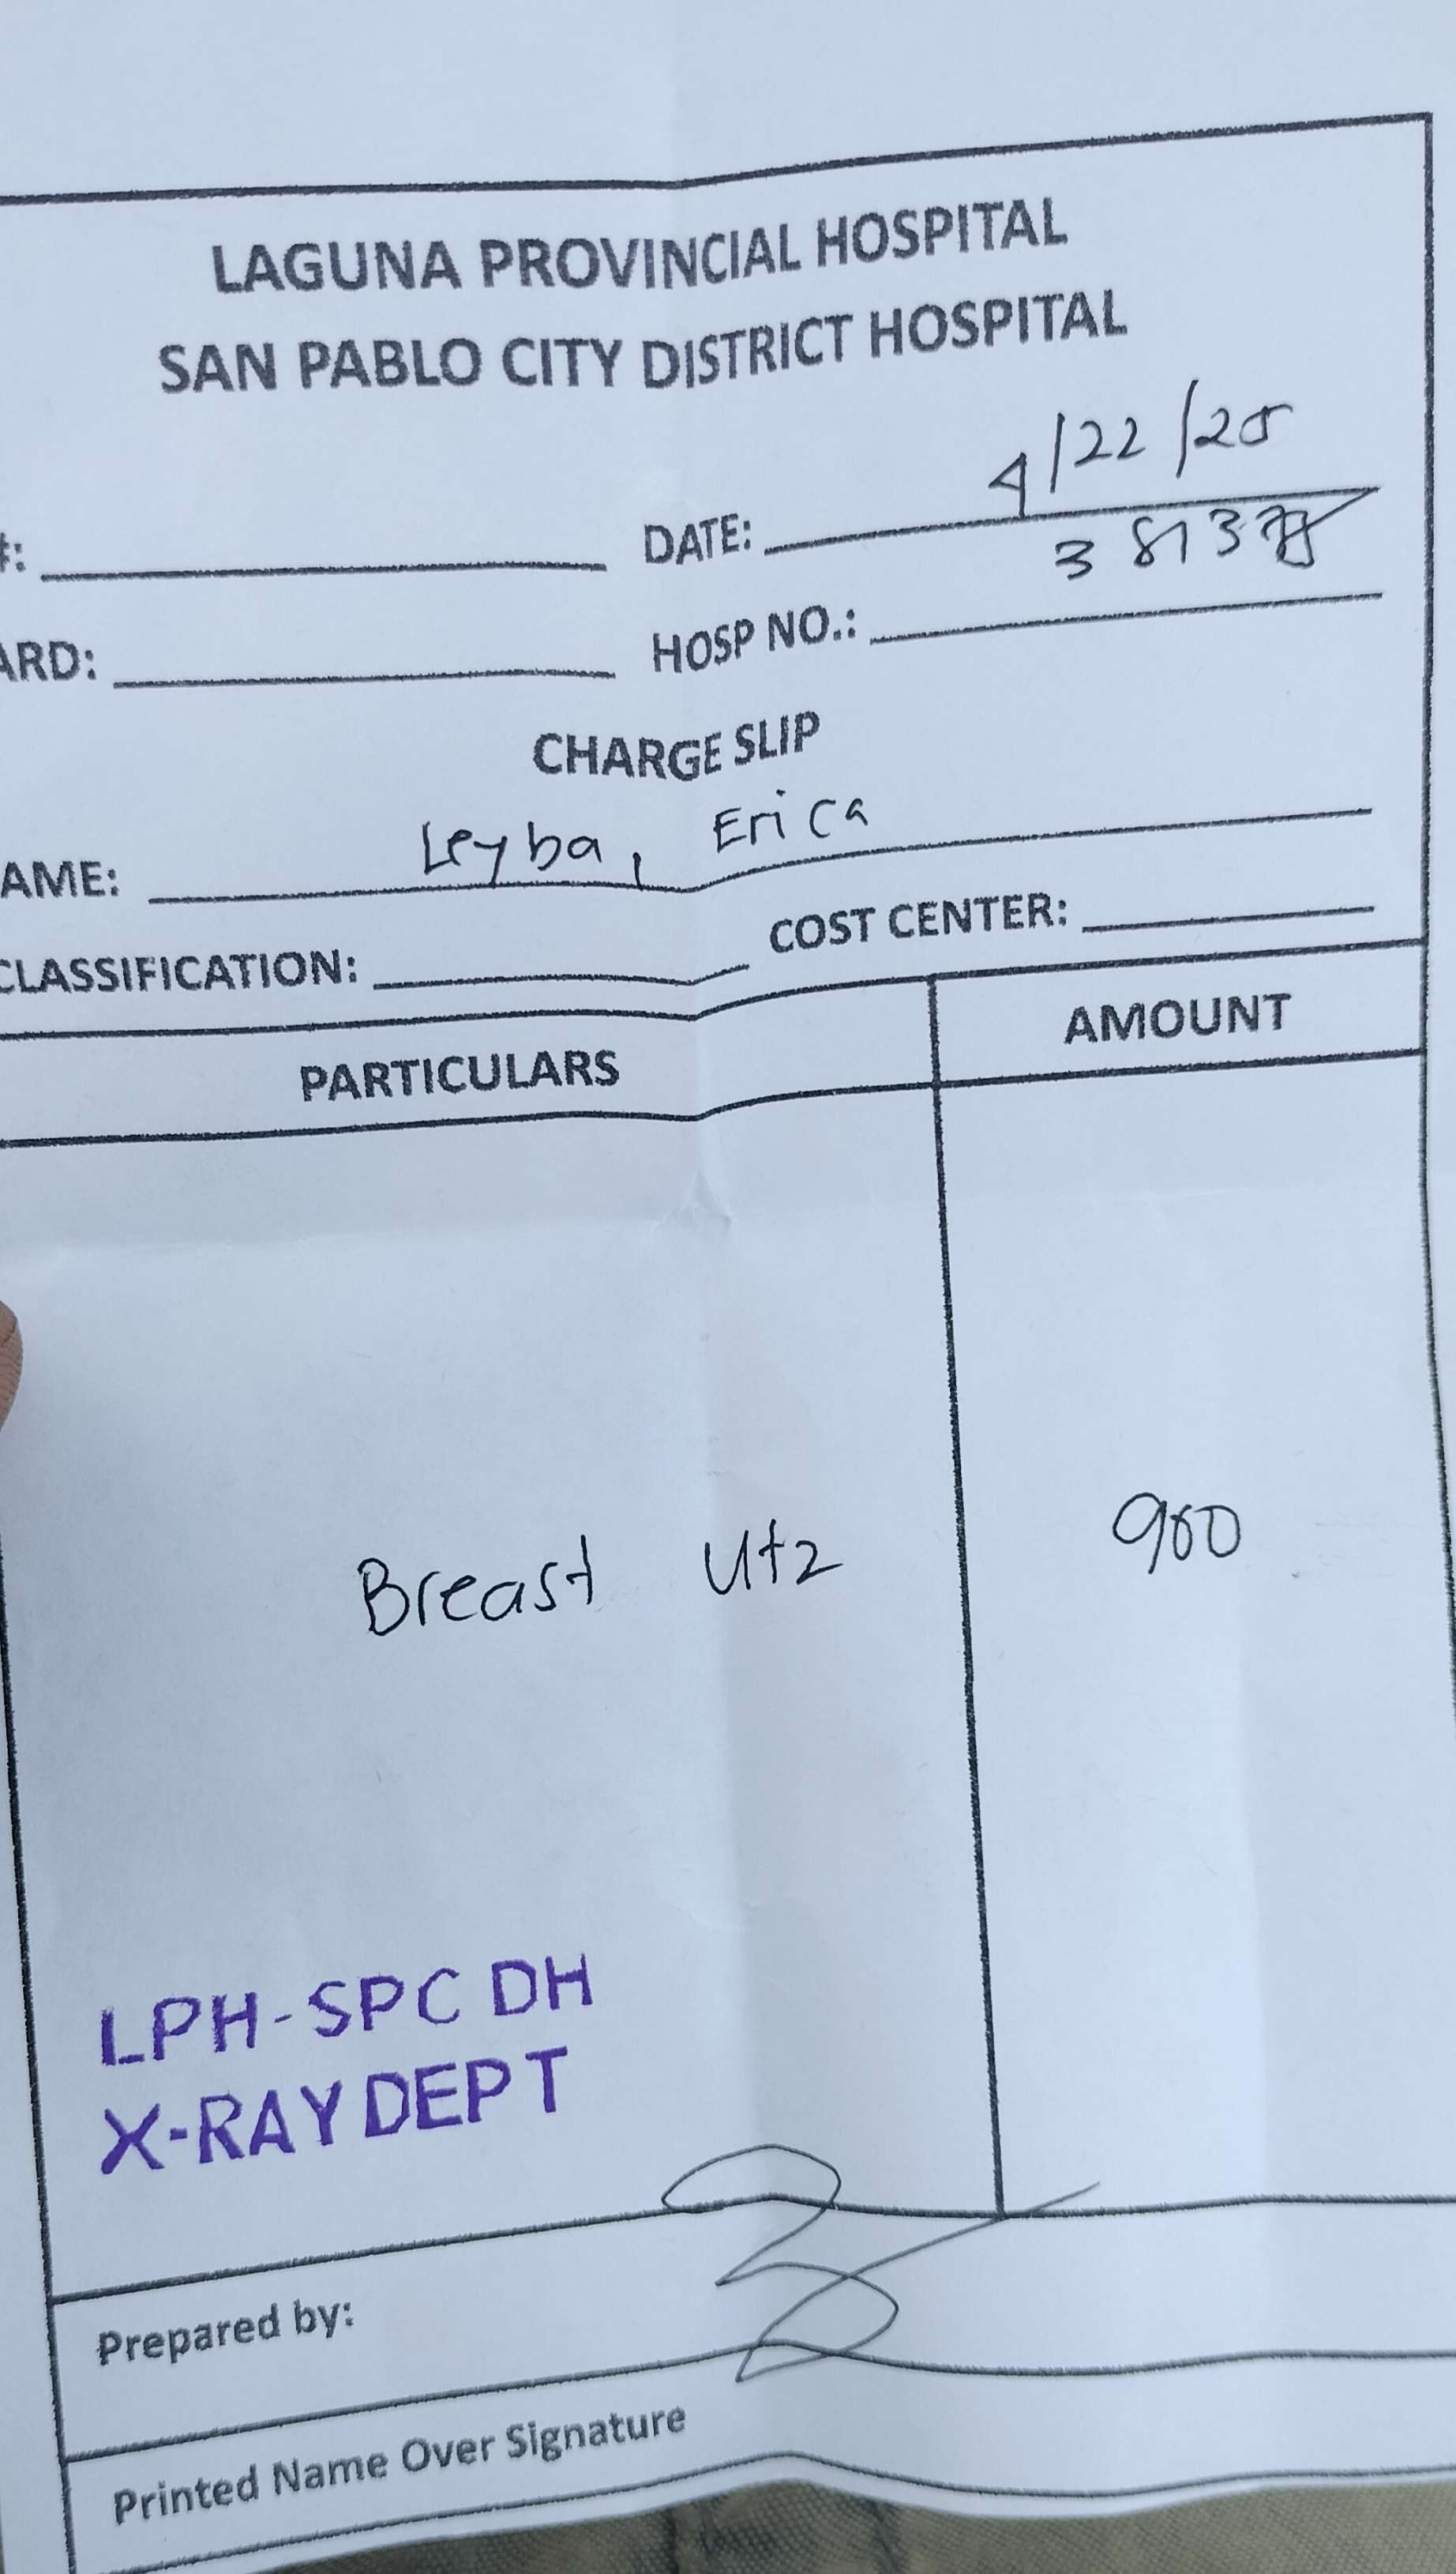 LAGUNA PROVINCIAL HOSPITAL
SAN PABLO CITY DISTRICT HOSPITAL
#: DATE: 4/22/25
ARD: HOSP NO.:
CHARGE SLIP
AME: Leyba, Erica
CLASSIFICATION: COST CENTER:
PARTICULARS AMOUNT
Breast Utz 900
LPH-SPC DH
X-RAY DEPT
Prepared by:
Printed Name Over Signature